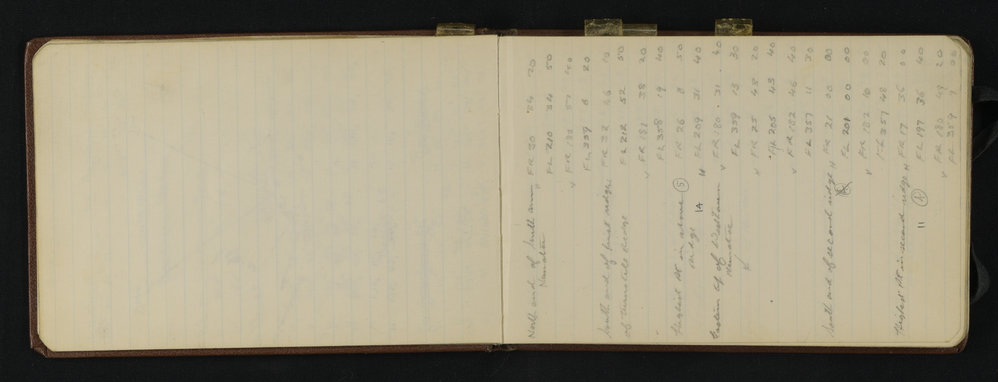 North end of south arm H FR 30 34 20
Nunatak FL 210 34 50
V FR 180 57 40
FL 359 8 20
South end of first ridge FR 32 46 10
of FL 212 52 50
V FR 181 38 20
FL 358 19 40
Highest Pt in above ⑤ FR 26 8 50
ridge 1A H FL 209 31 40
of Western V FR 180 31 40
Nunatak FL 359 13 30
H FR 25 48 20
FL 205 43 40
V FR 182 46 40
FL 357 11 30
South end of second ridge H FR 21 00 00
FL 201 00 00
V FR 182 10 00
FL 357 48 20
Highest Pt in second ridge H FR 17 36 00
11 ④ FL 197 36 40
V FR 180 49 20
FL 359 9 00